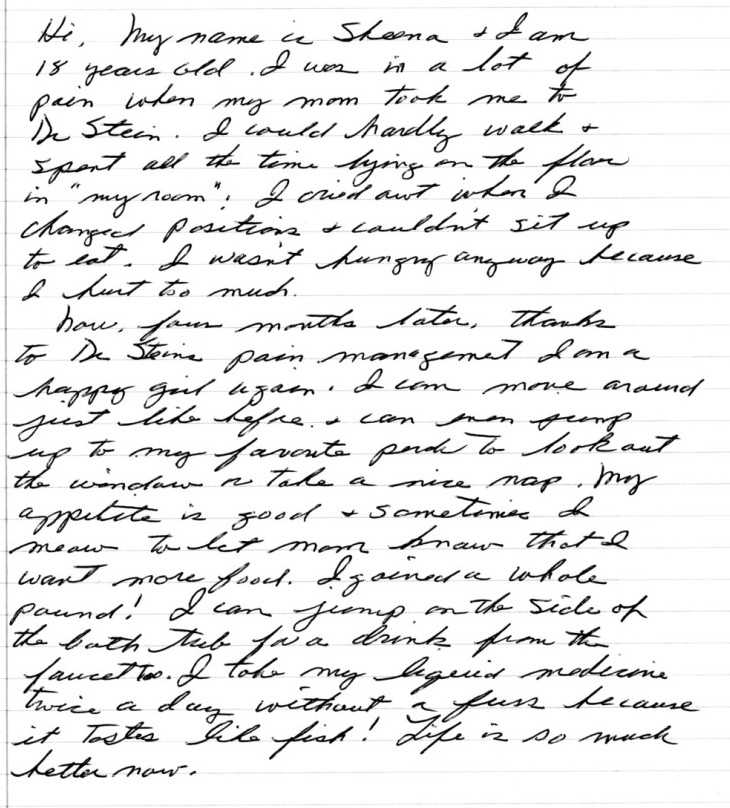 Hi, My name is Sheena & I am
18 years old. I was in a lot of
pain when my mom took me to
Dr Stein. I could hardly walk &
spent all the time lying on the floor
in "my room". I cried out when I
changed positions & couldn't sit up
to eat. I wasn't hungry anyway because
I hurt too much.
Now, four months later, thanks
to Dr Steins pain management I am a
happy girl again. I can move around
just like before & can even jump
up to my favorite perch to look out
the window or take a nice nap. My
appetite is good & sometimes I
meow to let mom know that I
want more food. I gained a whole
pound! I can jump on the side of
the bath tub for a drink from the
faucet too. I take my liquid medicine
twice a day without a fuss because
it tastes like fish! Life is so much
better now.